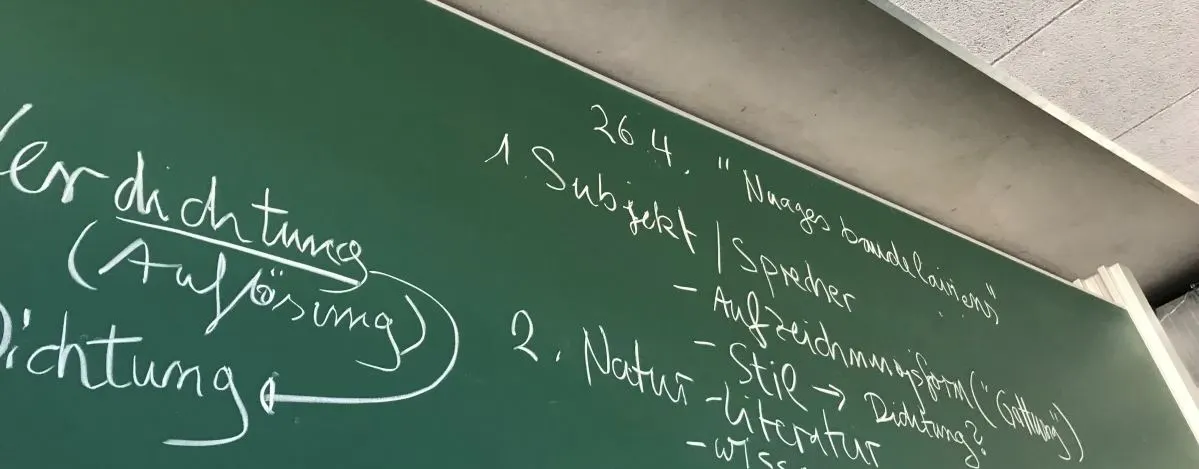 Verdichtung
(Auflösung)
Dichtung
26.4. "Nuages baudelairiens"
1. Subjekt / Sprecher
- Aufzeichnungsform ("Gattung")
- Stil → Dichtung?
2. Natur - Literatur